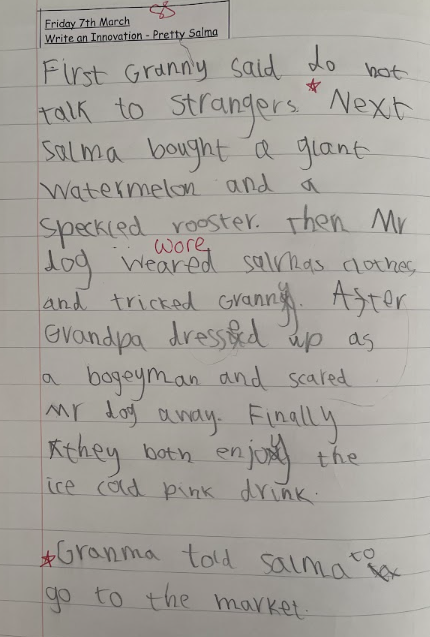 Friday 7th March
Write an Innovation - Pretty Salma
First Granny said do not
talk to strangers. * Next
Salma bought a giant
watermelon and a
speckled rooster. Then Mr
wore
dog weared salmas clothes
and tricked Granny. After
Grandpa dressed up as
a bogeyman and scared
Mr dog away. Finally
they both enjoy the
ice cold pink drink.
*Granma told salma to
go to the market.